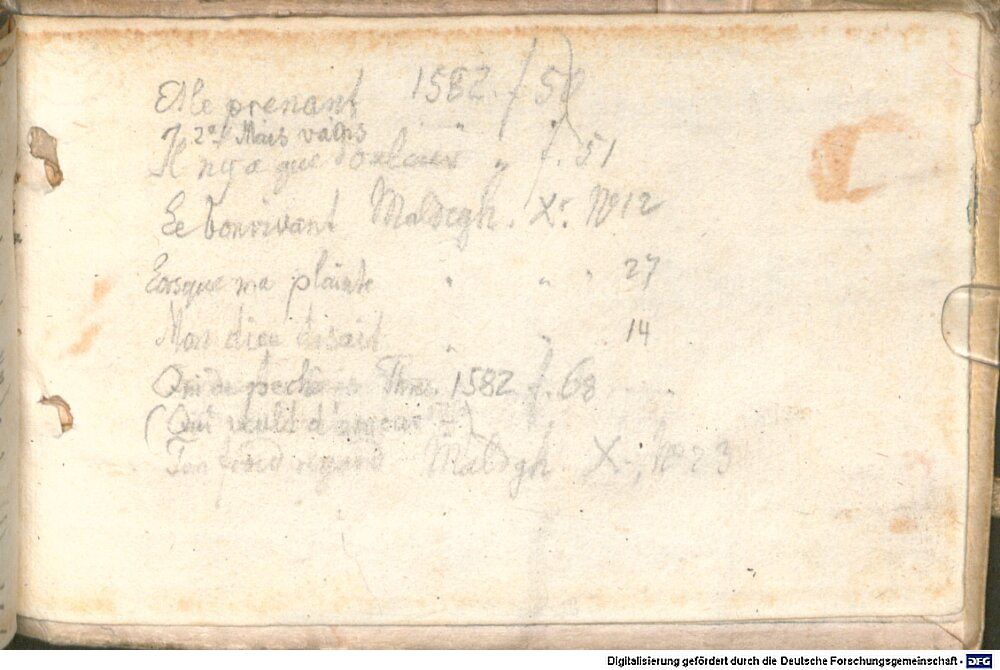 Elle prenant 1582. f 50
2a. Mais vains
Il n'y a que douleur „ f. 51
Le bon vivant Maldegh. X. No 12
Lorsque ma plainte " " " 27
Mon dieu disait " " 14
Qui de 1582 f. 68
(Qui veult d'amour )
Ton froid regard Maldgh X. No 23
Digitalisierung gefördert durch die Deutsche Forschungsgemeinschaft - DFG